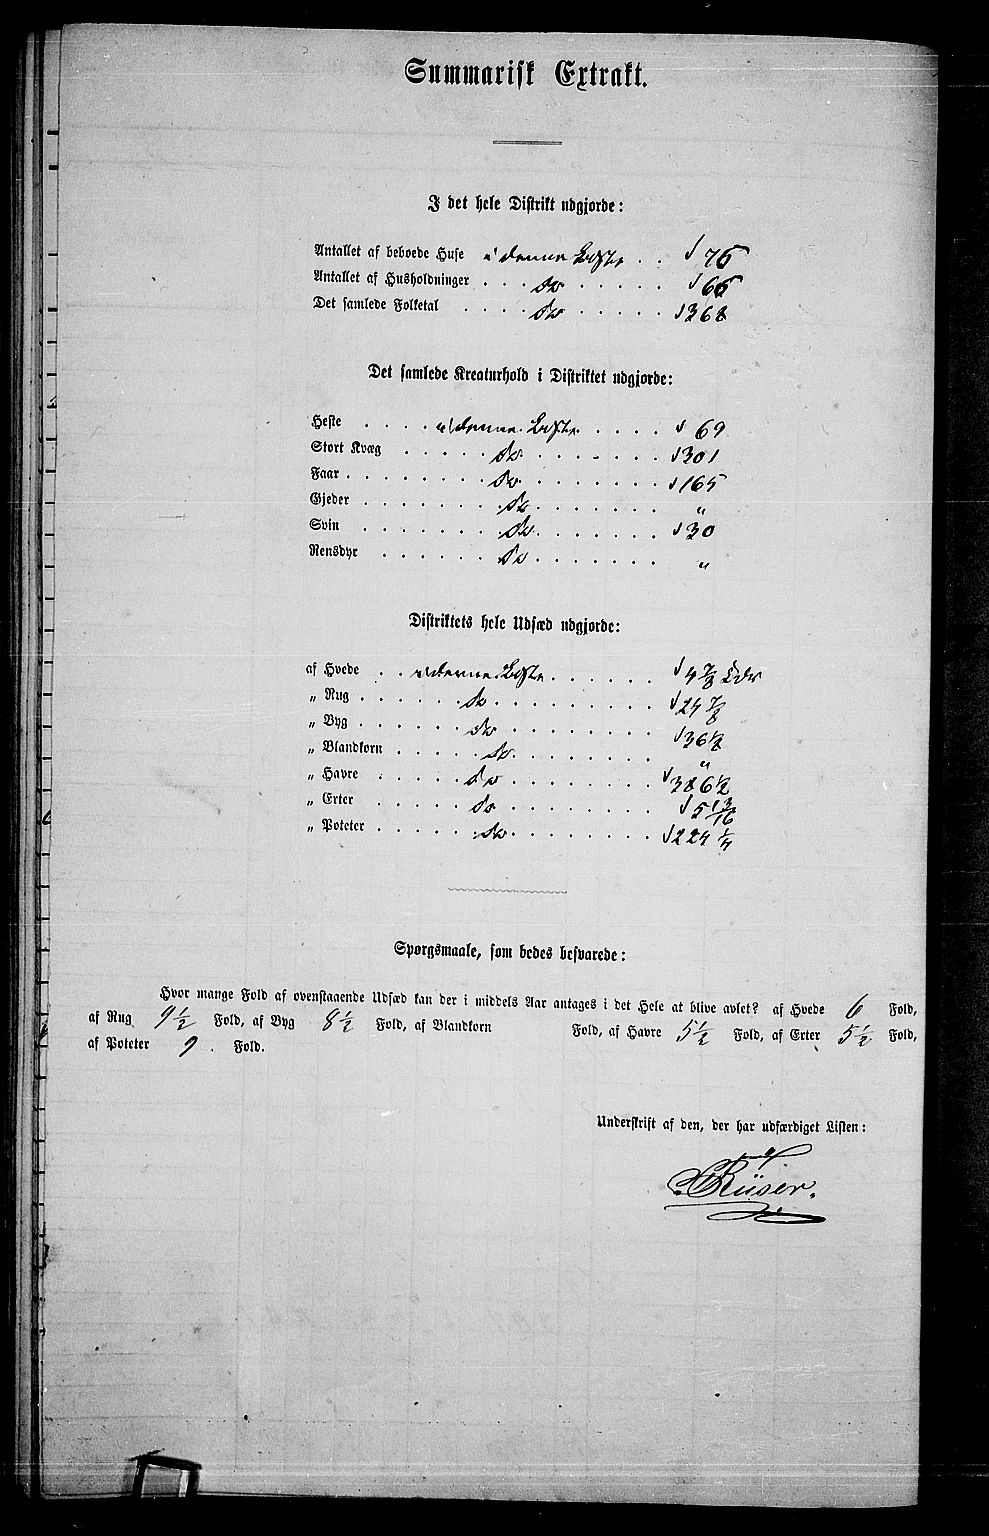 Summarisk Extrakt.
I det hele Distrikt udgjorde:
Antallet af beboede Huse i denne Liste 75
Antallet af Husholdninger do 65
Det samlede Folketal do 368
Det samlede Kreaturhold i Distriktet udgjorde:
Heste i denne Liste 69
Stort Kvæg do 301
Faar do 165
Gjeder do "
Svin do 30
Rensdyr do "
Distriktets hele Udsæd udgjorde:
af Hvede i denne Liste 4 7/8 Tdr
„ Rug do 24 7/8
„ Byg do 36 1/2
„ Blandkorn do "
„ Havre do 386 1/2
„ Erter do 5 13/16
„ Poteter do 224 1/4
Spørgsmaale, som bedes besvarede:
Hvor mange Fold af ovenstaaende Udsæd kan der i middels Aar antages i det Hele at blive avlet? af Hvede 6 Fold,
af Rug 9 1/2 Fold, af Byg 8 1/2 Fold, af Blandkorn Fold, af Havre 5 1/2 Fold, af Erter 5 1/2 Fold,
af Poteter 9 Fold.
Underskrift af den, der har udfærdiget Listen:
Rüser.